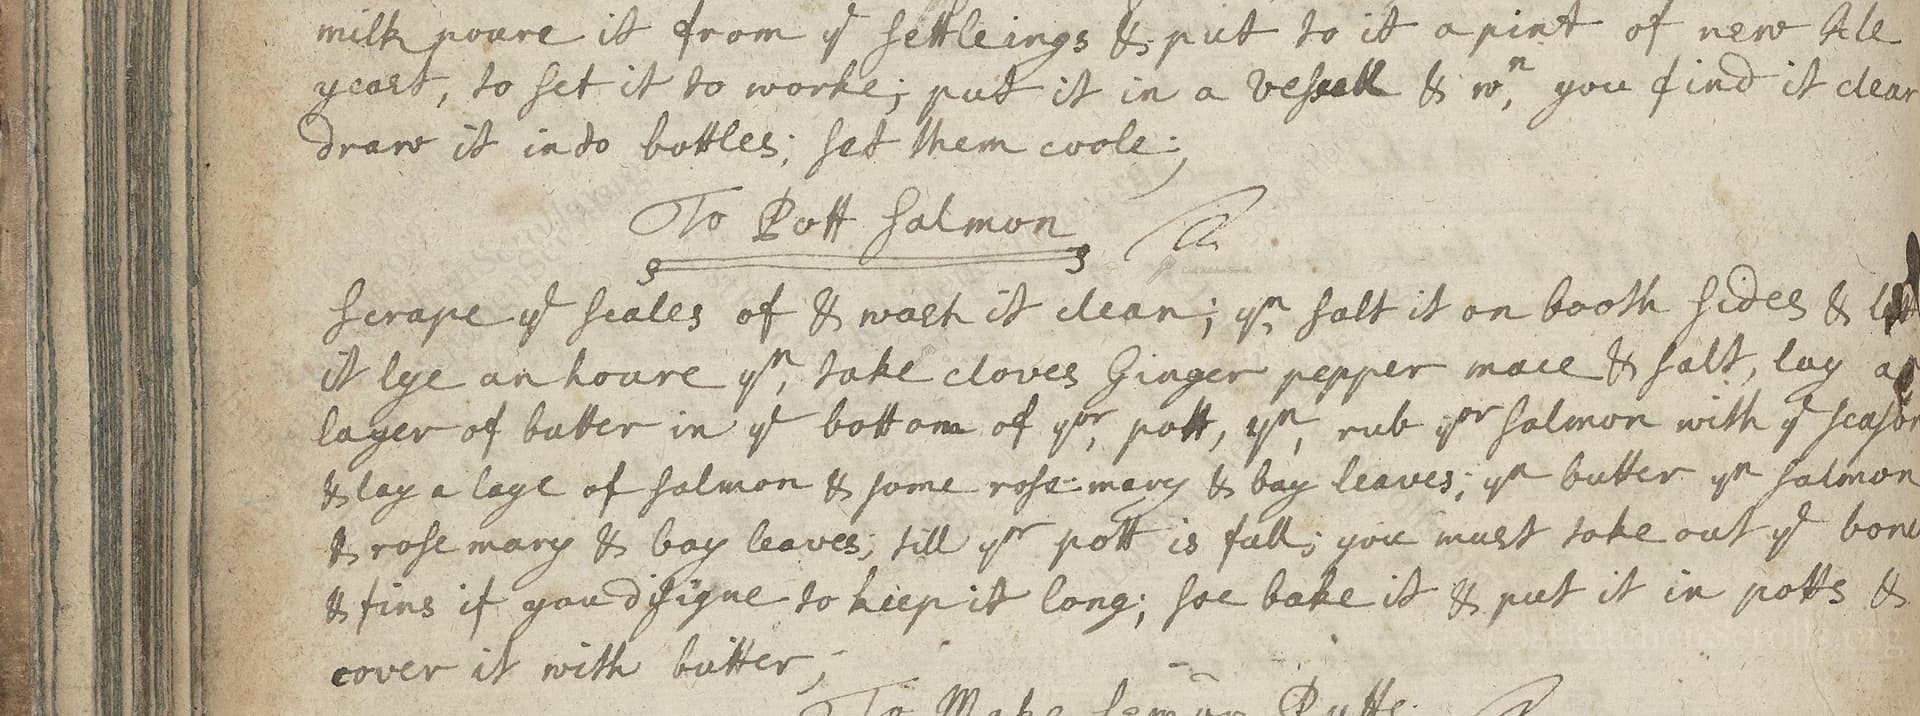 milk poure it from yͤ settleings & put to it a pint of new Ale
yeast, to set it to worke; put it in a vessell & wⁿ, you find it clear
draw it into bottles; set them coole;
To Pott Salmon
Scrape yͤ scales of & wash it clean; yⁿ, salt it on booth sides & let
it lye an houre yⁿ, take cloves Ginger pepper mace & salt, lay a
layer of butter in yͤ bottom of yoʳ, pott, yⁿ, rub yoʳ salmon with yͤ season
& lay a laye of salmon & some rose:mary & bay leaves; yⁿ butter yⁿ salmon
& rosemary & bay leaves, till yʳ pott is full; you must take out yͤ bone
& fins if you disigne to keep it long; soe bake it & put it in potts &
cover it with butter;
To Make Puffs